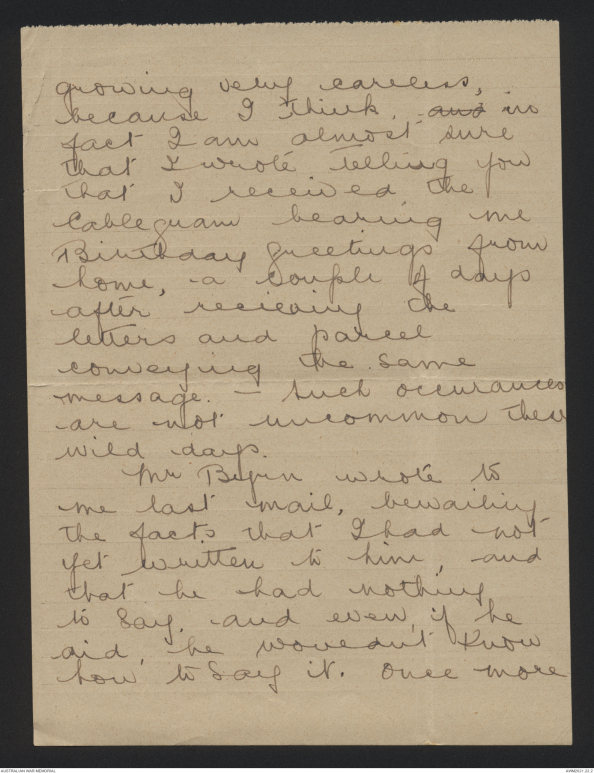 growing very careless,
because I think, and in
fact I am almost sure
that I wrote telling you
that I received the
Cablegram bearing me
Birthday greetings from
home, a couple of days
after recieving the
letters and parcel
conveying the same
message. – Such occurances
are not uncommon these
wild days.
Mr wrote to
me last mail, bewailing
the facts that I had not
yet written to him, and
that he had nothing
to say, and even, if he
did, he wouldn't know
how to say it. Once more
AUSTRALIAN WAR MEMORIAL